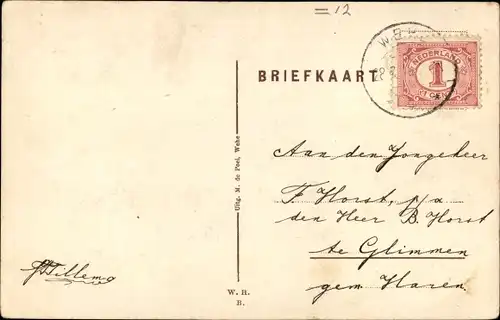 = 12
BRIEFKAART
NEDERLAND
1
CENT
Uitg. M. de Poel, Wehe
Aan den Jongeheer
F. Horst, p/a
den Heer B. Horst
te Glimmen
gem Haren.
W. H.
B.